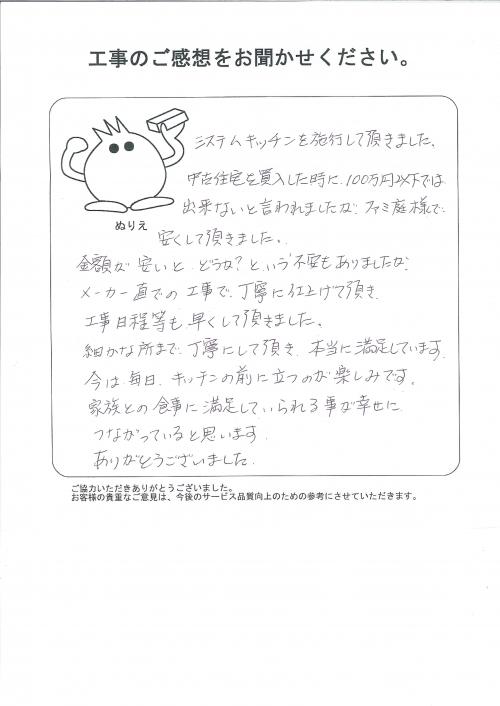 工事のご感想をお聞かせください。
システムキッチンを施行して頂きました、
中古住宅を買入した時に、100万円以下では
出来ないと言われましたが、ファミ庭様で、
安くして頂きました、
ぬりえ
金額が安いと、どうかな?という不安もありましたが、
メーカー直での工事で、丁寧に仕上げて頂き、
工事日程等も早くして頂きました、
細かな所まで丁寧にして頂き、本当に満足しています。
今は毎日、キッチンの前に立つのが楽しみです。
家族との食事に満足していられる事が幸せに
つながっていると思います。
ありがとうございました。
ご協力いただきありがとうございました。
お客様の貴重なご意見は、今後のサービス品質向上のための参考にさせていただきます。